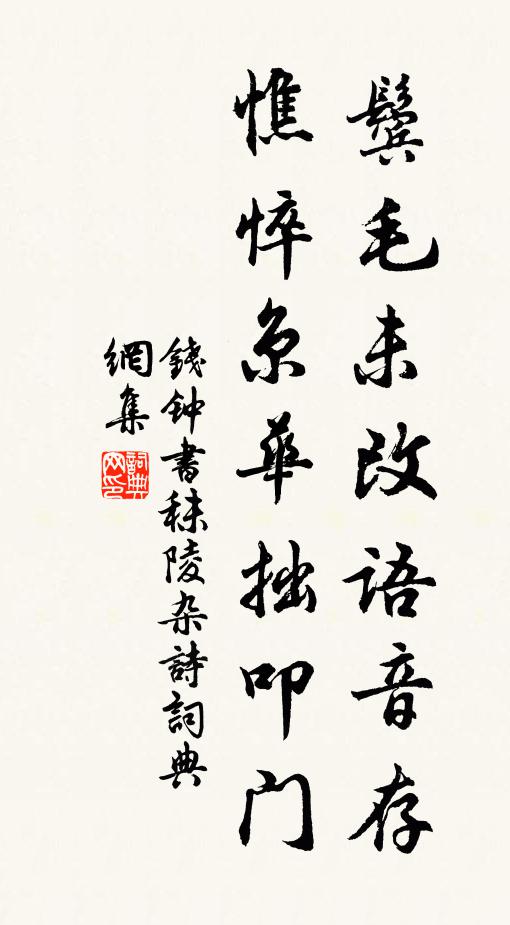 鬓毛未改語音存
憔悴京華拙叩门
錢钟書秣陵杂詩詞典
網集
詞典
网印